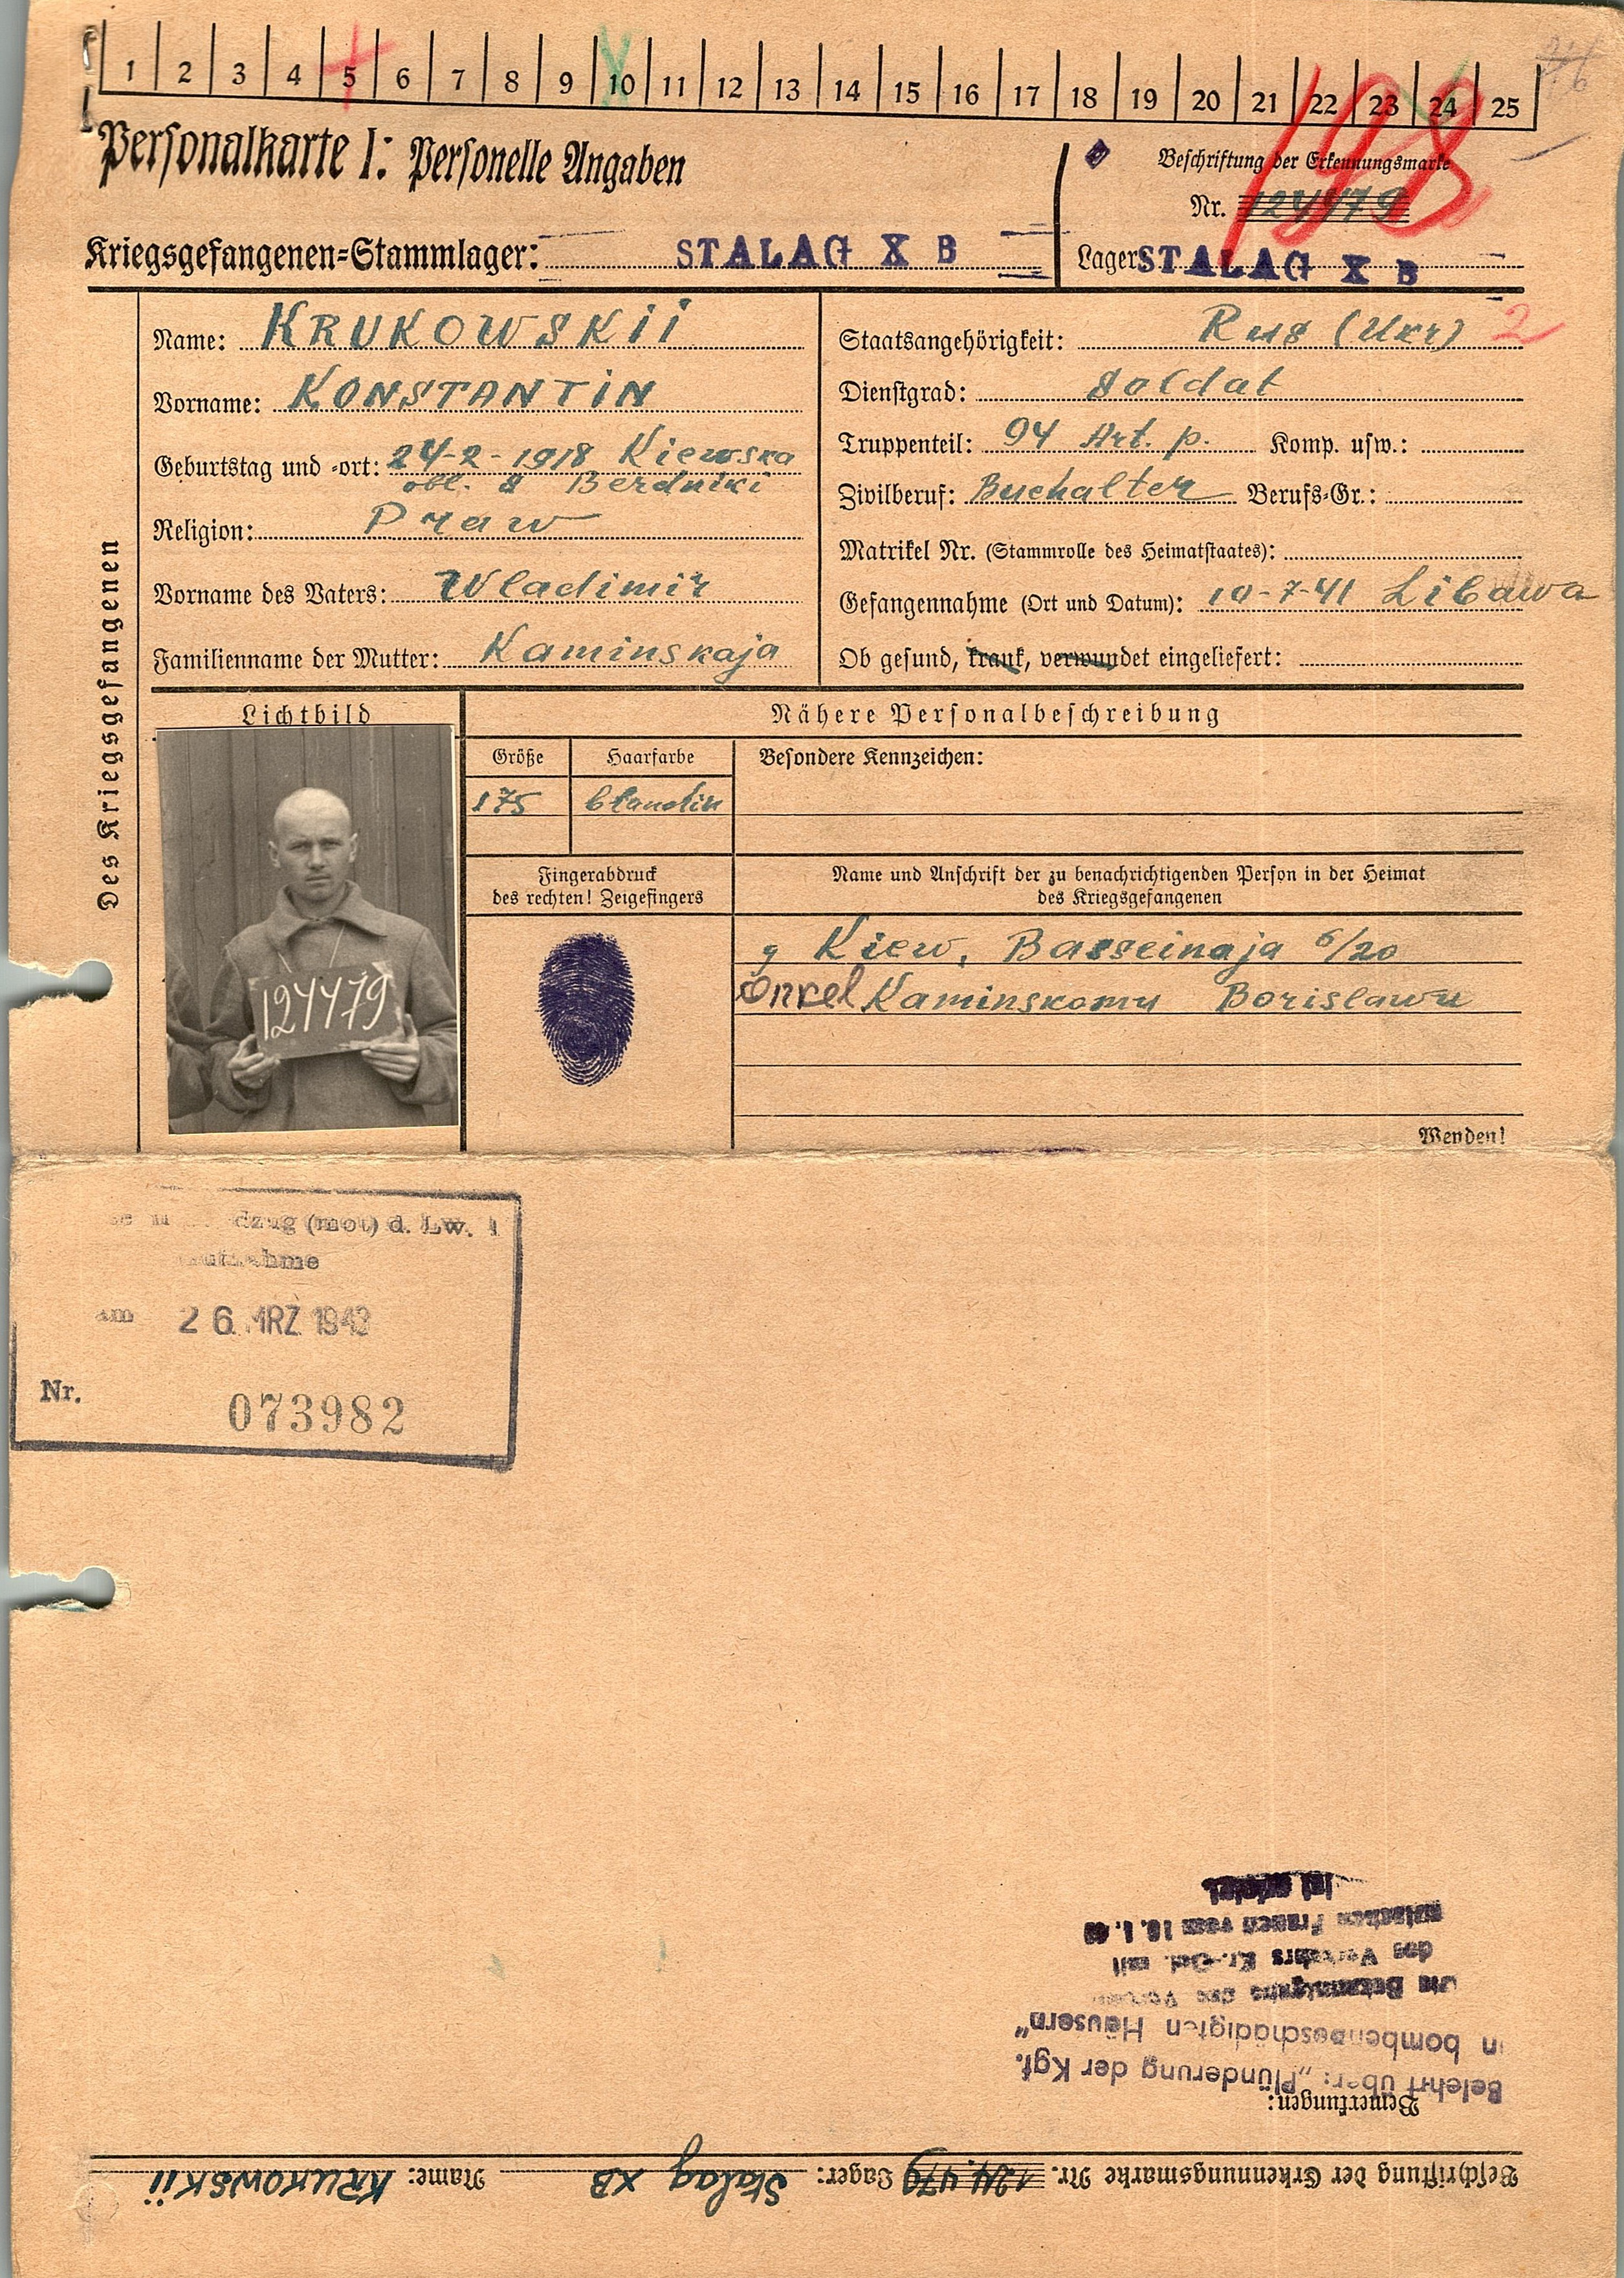 1 2 3 4 5 6 7 8 9 10 11 12 13 14 15 16 17 18 19 20 21 22 23 24 25
198
Personalkarte I: Personelle Angaben
Beschriftung der Erkennungsmarke
Nr. 124479
Kriegsgefangenen=Stammlager: STALAG X B
Lager STALAG X B
Des Kriegsgefangenen
Name: KRUKOWSKII
Vorname: KONSTANTIN
Geburtstag und =ort: 24-2-1918 Kiewska
obl. Berdniki
Religion: Praw
Vorname des Vaters: Wladimir
Familienname der Mutter: Kaminskaja
Staatsangehörigkeit: Rus (Ukr) 2
Dienstgrad: Soldat
Truppenteil: 94 Art. p. Komp. usw.:
Zivilberuf: Buchalter Berufs=Gr.:
Matrikel Nr. (Stammrolle des Heimatstaates):
Gefangennahme (Ort und Datum): 10-7-41 Libawa
Ob gesund, krank, verwundet eingeliefert:
Lichtbild
124479
Nähere Personalbeschreibung
Größe Haarfarbe Besondere Kennzeichen:
175 blandin
Fingerabdruck
des rechten! Zeigefingers
Name und Anschrift der zu benachrichtigenden Person in der Heimat
des Kriegsgefangenen
g Kiew, Basseinaja 6/20
Onkel Kaminskomu Borislawu
Wenden!
(mot) d. Lw.
am 26. MRZ 1943
Nr. 073982
Beschriftung der Erkennungsmarke Nr. 124.479 Lager: Stalag XB Name: KRUKOWSKII
Bemerkungen:
Belehrt über: „Plünderung der Kgf.
in bombenbeschädigten Häusern"
des Verkehrs Kr.-Gef. mit
Frauen vom
ist erfolgt